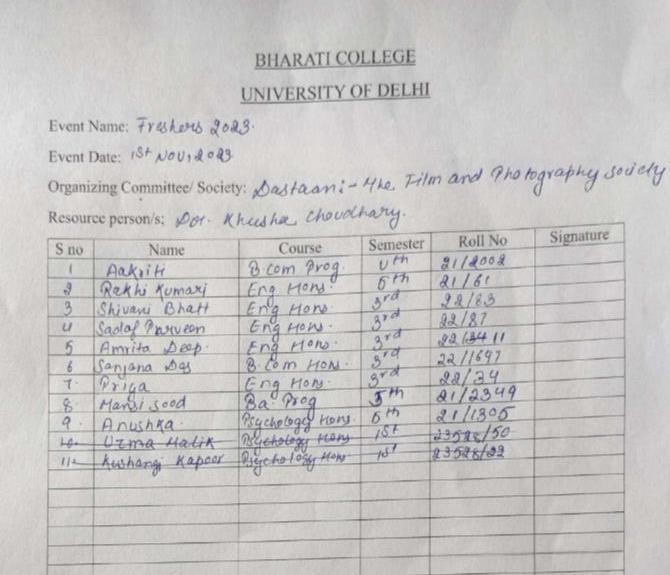 BHARATI COLLEGE
UNIVERSITY OF DELHI
Event Name: Freshers 2023.
Event Date: 1st NOV, 2023
Organizing Committee/ Society: Dastaani - The Film and Photography society
Resource person/s: Dr. Khusha Choudhary.
S no Name Course Semester Roll No Signature
1 Aakriti B.com Prog. 21/2002
2 Rakhi Kumari Eng Hons. 5th 21/61
3 Shivani Bhatt Eng Hons. 3rd 22/83
4 Sadaf Parveen Eng Hons. 3rd 22/87
5 Amrita Deep. Eng Hons. 3rd 11
6 Sanjana Das B.Com Hons. 3rd 22/1697
7. Priya Eng Hons. 3rd 22/34
8. Mansi Sood Ba. Prog 5th 21/2349
9. Anushka. Psychology Hons. 5th 21/1305
10. Uzma Malik Psychology Hons 1st 23528/50
11. Kushangi Kapoor Psychology Hons 1st 23528/22